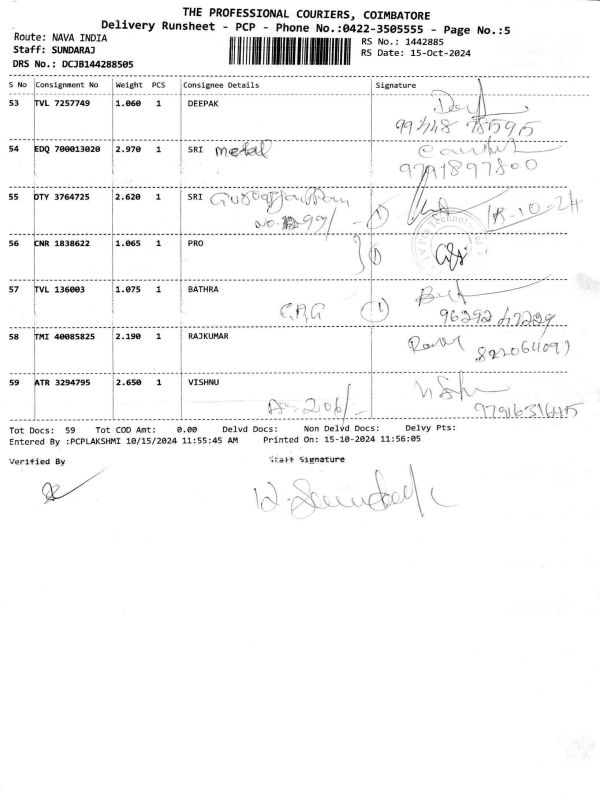 THE PROFESSIONAL COURIERS, COIMBATORE
Delivery Runsheet - PCP - Phone No.:0422-3505555 - Page No.:5
Route: NAVA INDIA
RS No.: 1442885
Staff: SUNDARAJ
RS Date: 15-Oct-2024
DRS No.: DCJB144288505
S No Consignment No Weight PCS Consignee Details Signature
53 TVL 7257749 1.060 1 DEEPAK
54 EDQ 700013020 2.970 1 SRI metal
9791897800
55 DTY 3764725 2.620 1 SRI
15-10-24
56 CNR 1838622 1.065 1 PRO
57 TVL 136003 1.075 1 BATHRA
58 TMI 40085825 2.190 1 RAJKUMAR
59 ATR 3294795 2.650 1 VISHNU
Tot Docs: 59 Tot COD Amt: 0.00 Delvd Docs: Non Delvd Docs: Delvy Pts:
Entered By :PCPLAKSHMI 10/15/2024 11:55:45 AM Printed On: 15-10-2024 11:56:05
Verified By Staff Signature